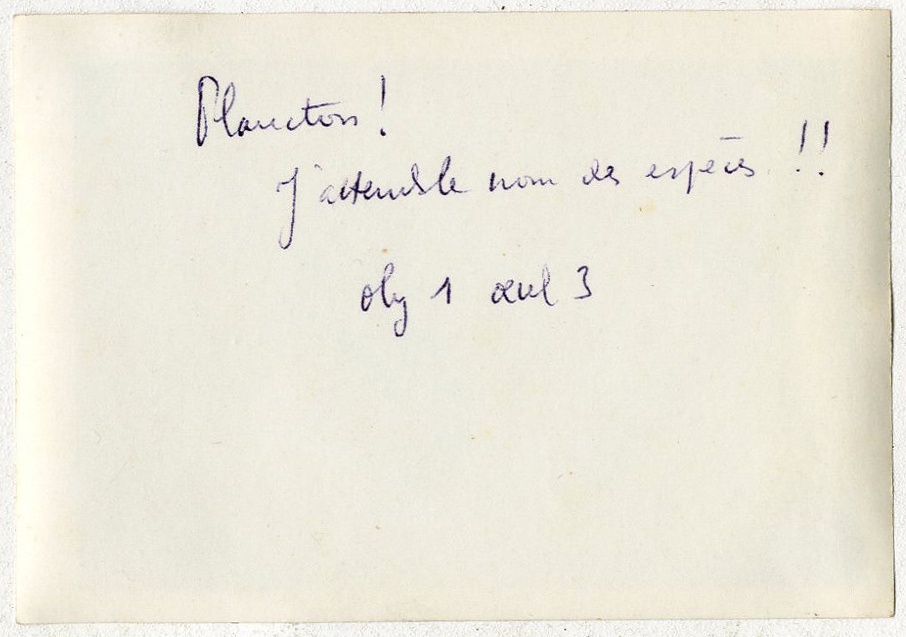 Plancton !
J'attends le nom des espèces !!
obj 1 ocul 3